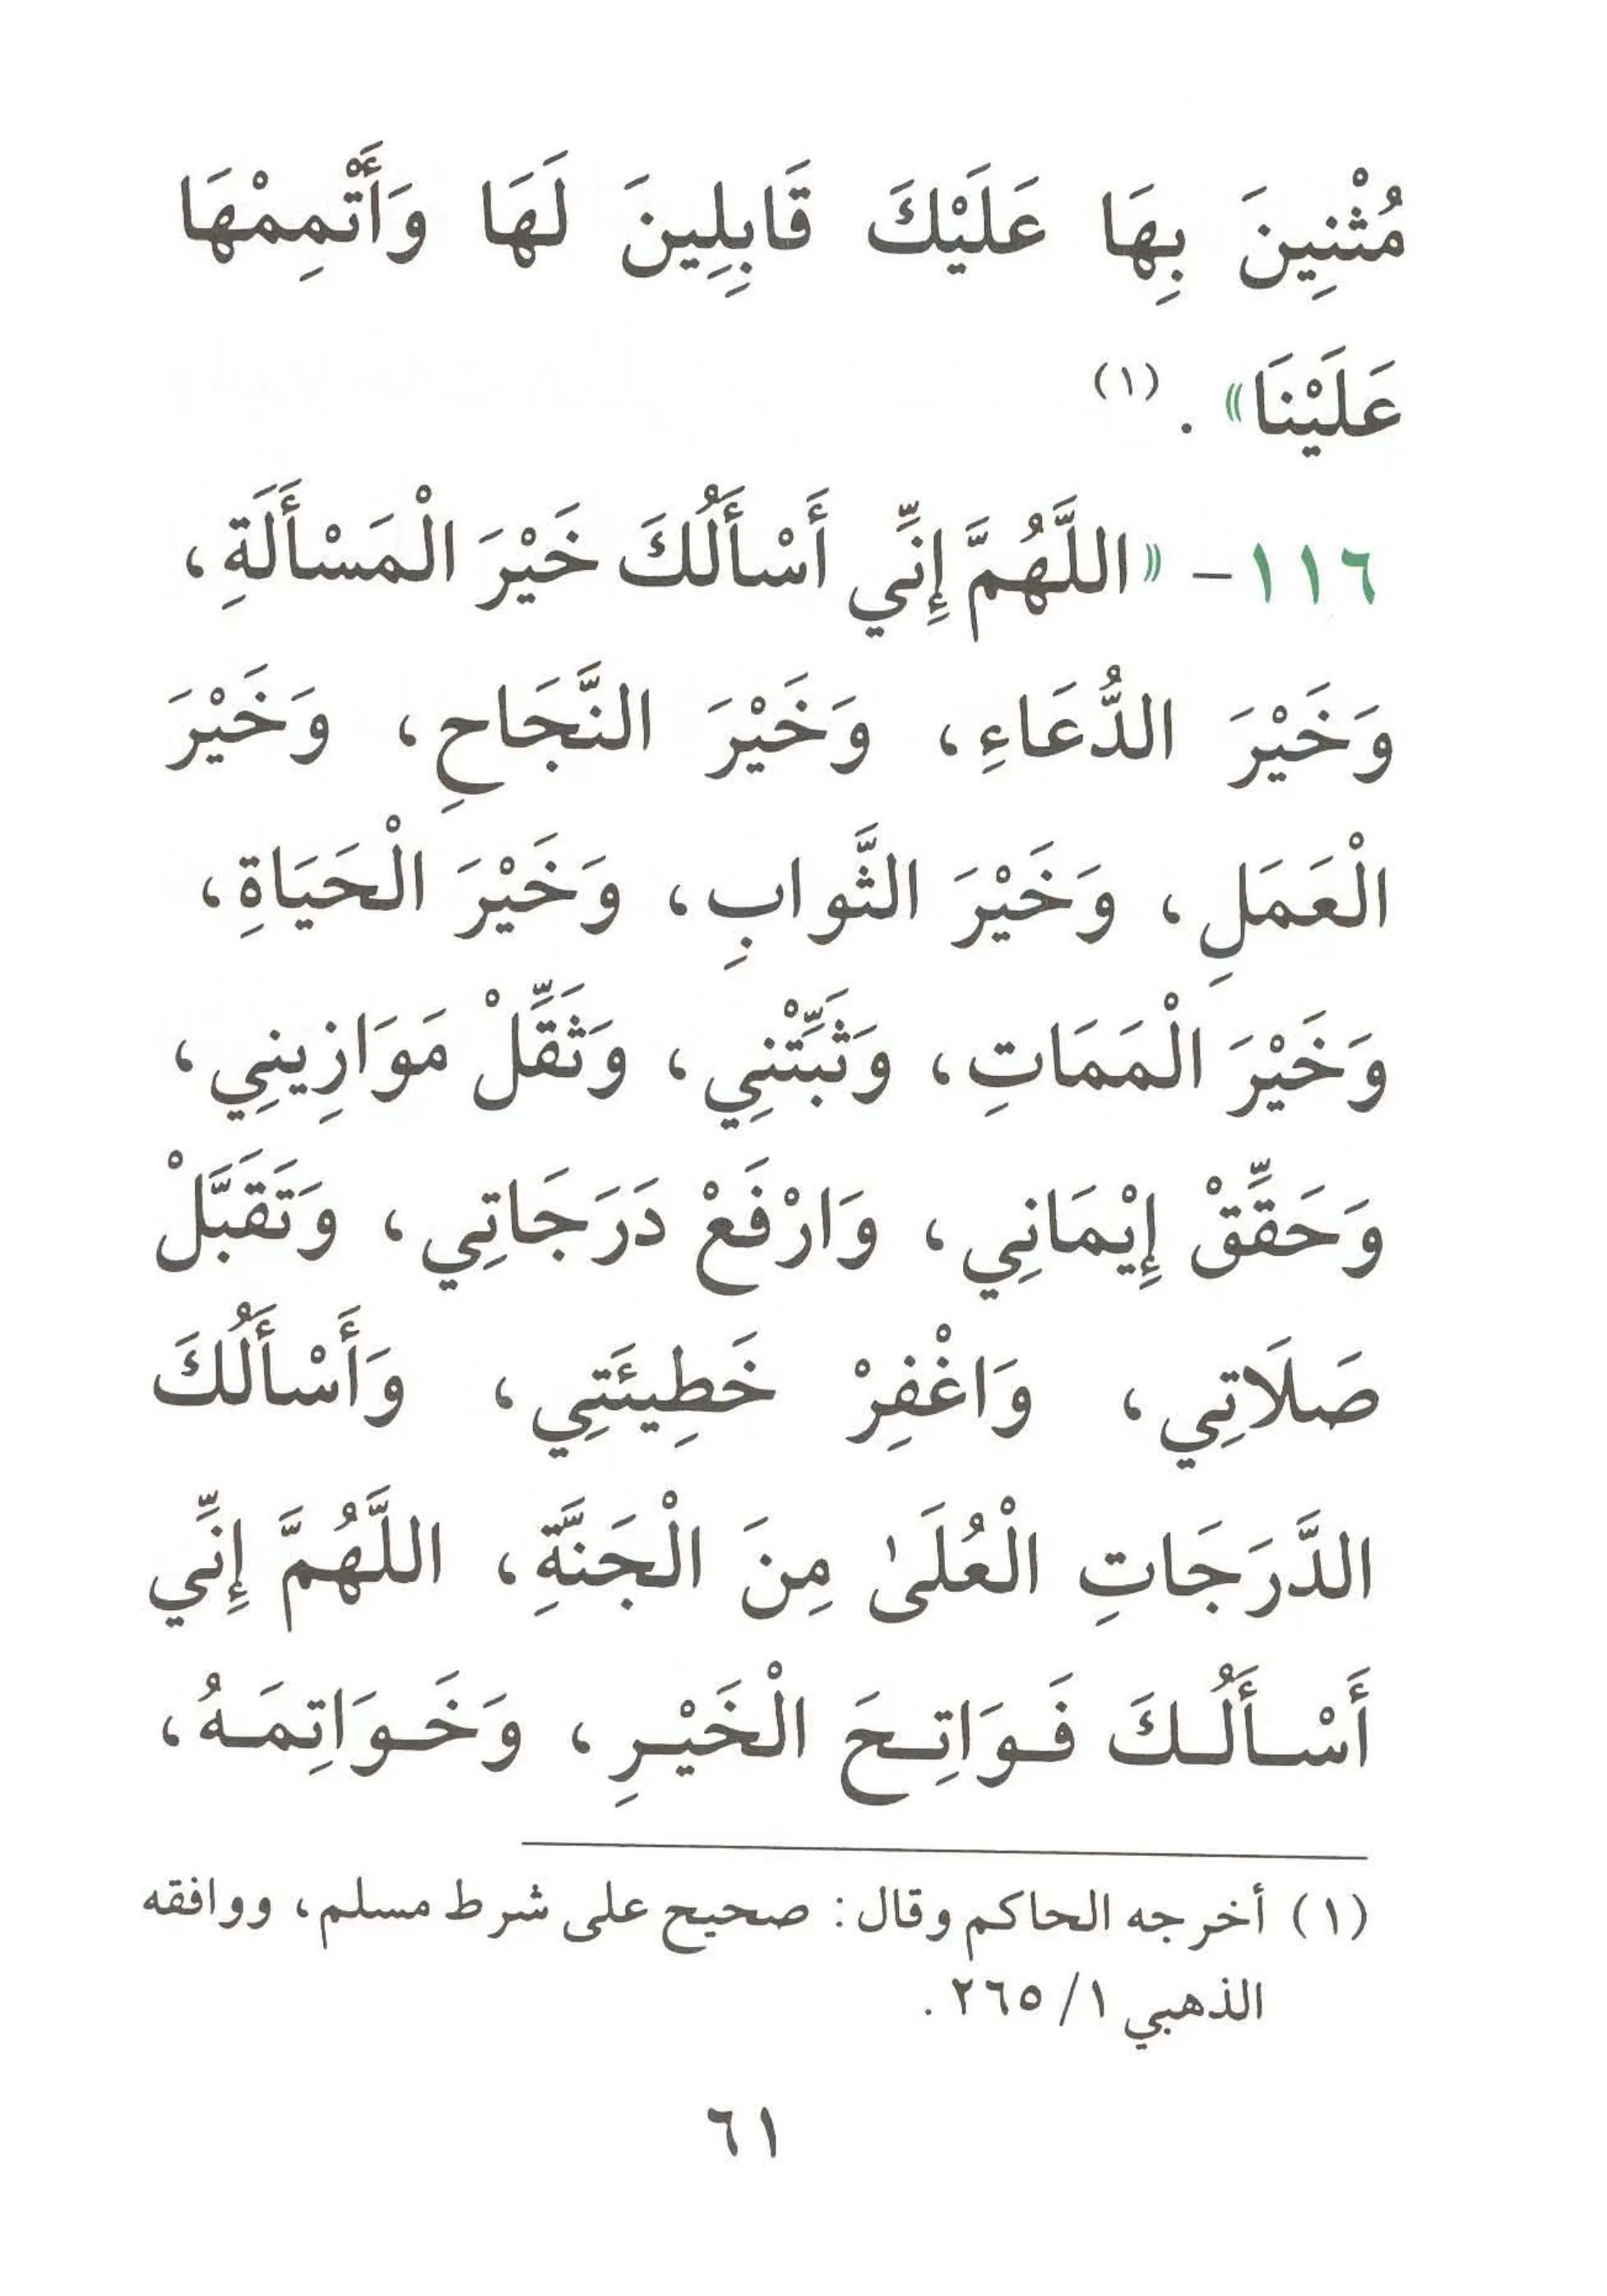 مُثْنِينَ بِهَا عَلَيْكَ قَابِلِينَ لَهَا وَأَتْمِمْهَا
عَلَيْنَا» . (١)
١١٦- «اللَّهُمَّ إِنِّي أَسْأَلُكَ خَيْرَ الْمَسْأَلَةِ،
وَخَيْرَ الدُّعَاءِ، وَخَيْرَ النَّجَاحِ، وَخَيْرَ
الْعَمَلِ، وَخَيْرَ الثَّوابِ، وَخَيْرَ الْحَيَاةِ،
وَخَيْرَ الْمَمَاتِ، وَثَبِّتْنِي، وَثَقِّلْ مَوَازِينِي،
وَحَقِّقْ إِيْمَانِي، وَارْفَعْ دَرَجَاتِي، وَتَقَبَّلْ
صَلَاتِي، وَاغْفِرْ خَطِيئَتِي، وَأَسْأَلُكَ
الدَّرَجَاتِ الْعُلَىٰ مِنَ الْجَنَّةِ، اللَّهُمَّ إِنِّي
أَسْـأَلُـكَ فَـوَاتِـحَ الْخَيْـرِ، وَخَـوَاتِمَـهُ،
(١) أخرجه الحاكم وقال: صحيح على شرط مسلم، ووافقه
الذهبي ١/ ٢٦٥ .
٦١